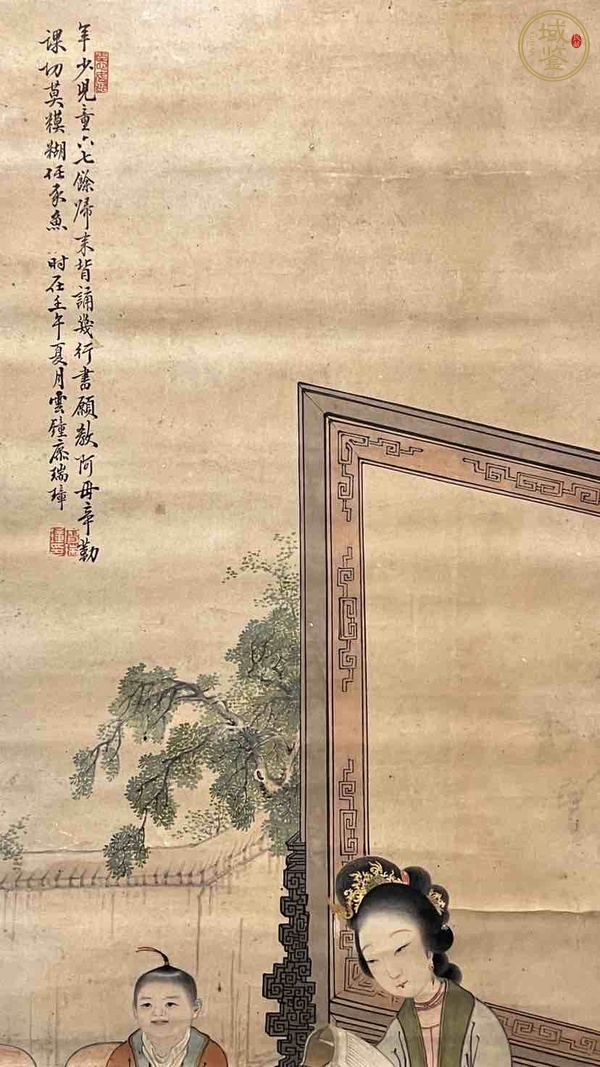 年少兒童六七餘歸来背誦幾行書願教阿母辛勤
課切莫糢糊任豕魚
时在壬午夏月雲鐘廉瑞璋
域鉴